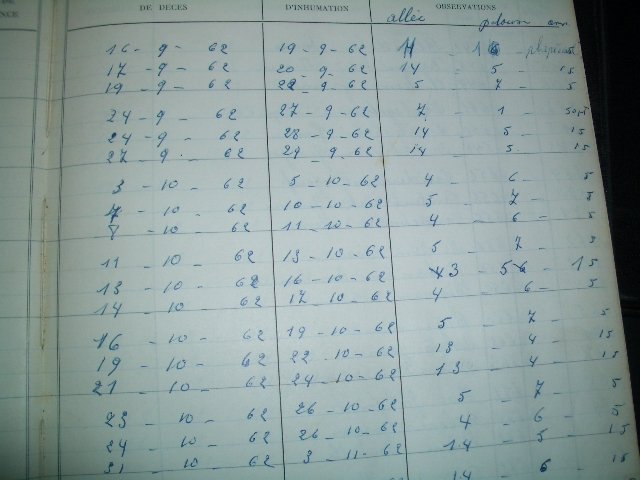 DE
NCE DE DÉCÈS D'INHUMATION OBSERVATIONS
allée ans
16 - 9 - 62 19 - 9 - 62 11 - 1
17 - 9 - 62 20 - 9 - 62 14 - 5 - 15
19 - 9 - 62 22 - 9 - 62 5 - 7 - 5
24 - 9 - 62 27 - 9 - 62 7 - 1
24 - 9 - 62 28 - 9 - 62 14 - 5 - 15
27 - 9 - 62 29 - 9 - 62 14 - 5 - 15
3 - 10 - 62 5 - 10 - 62 4 - 6 - 5
7 - 10 - 62 10 - 10 - 62 5 - 7 - 5
8 - 10 - 62 11 - 10 - 62 4 - 6 - 5
11 - 10 - 62 13 - 10 - 62 5 - 7 -
13 - 10 - 62 16 - 10 - 62 13 - 5 - 15
14 - 10 - 62 17 - 10 - 62 4 - 6 - 5
16 - 10 - 62 19 - 10 - 62 5 - 7 - 5
19 - 10 - 62 22 - 10 - 62 13 - 4 - 15
21 - 10 - 62 24 - 10 - 62 13 - 4 - 15
23 - 10 - 62 26 - 10 - 62 5 - 7 - 5
24 - 10 - 62 26 - 10 - 62 4 - 6 - 5
31 - 10 - 62 3 - 11 - 62 14 - 5 - 15
14 - 6 - 15